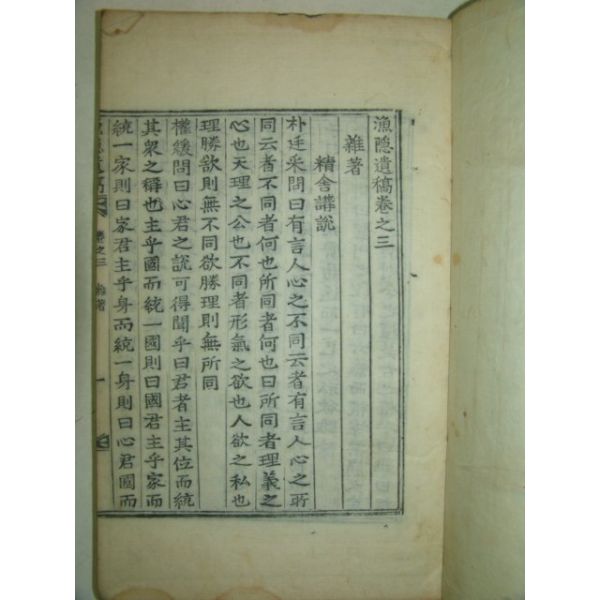 漁隱遺稿卷之三
雜著
精舍講說
朴廷采問曰有言人心之不同云者有言人心之所
同云者不同者何也所同者何也曰所同者理義之
心也天理之公也不同者形氣之欲也人欲之私也
理勝欲則無不同欲勝理則無所同
權緩問曰心君之說可得聞乎曰君者主其位而統
其衆之稱也主乎國而統一國則曰國君主乎家而
統一家則曰家君主乎身而統一身則曰心君國而
漁隱遺稿 卷之三 雜著 一